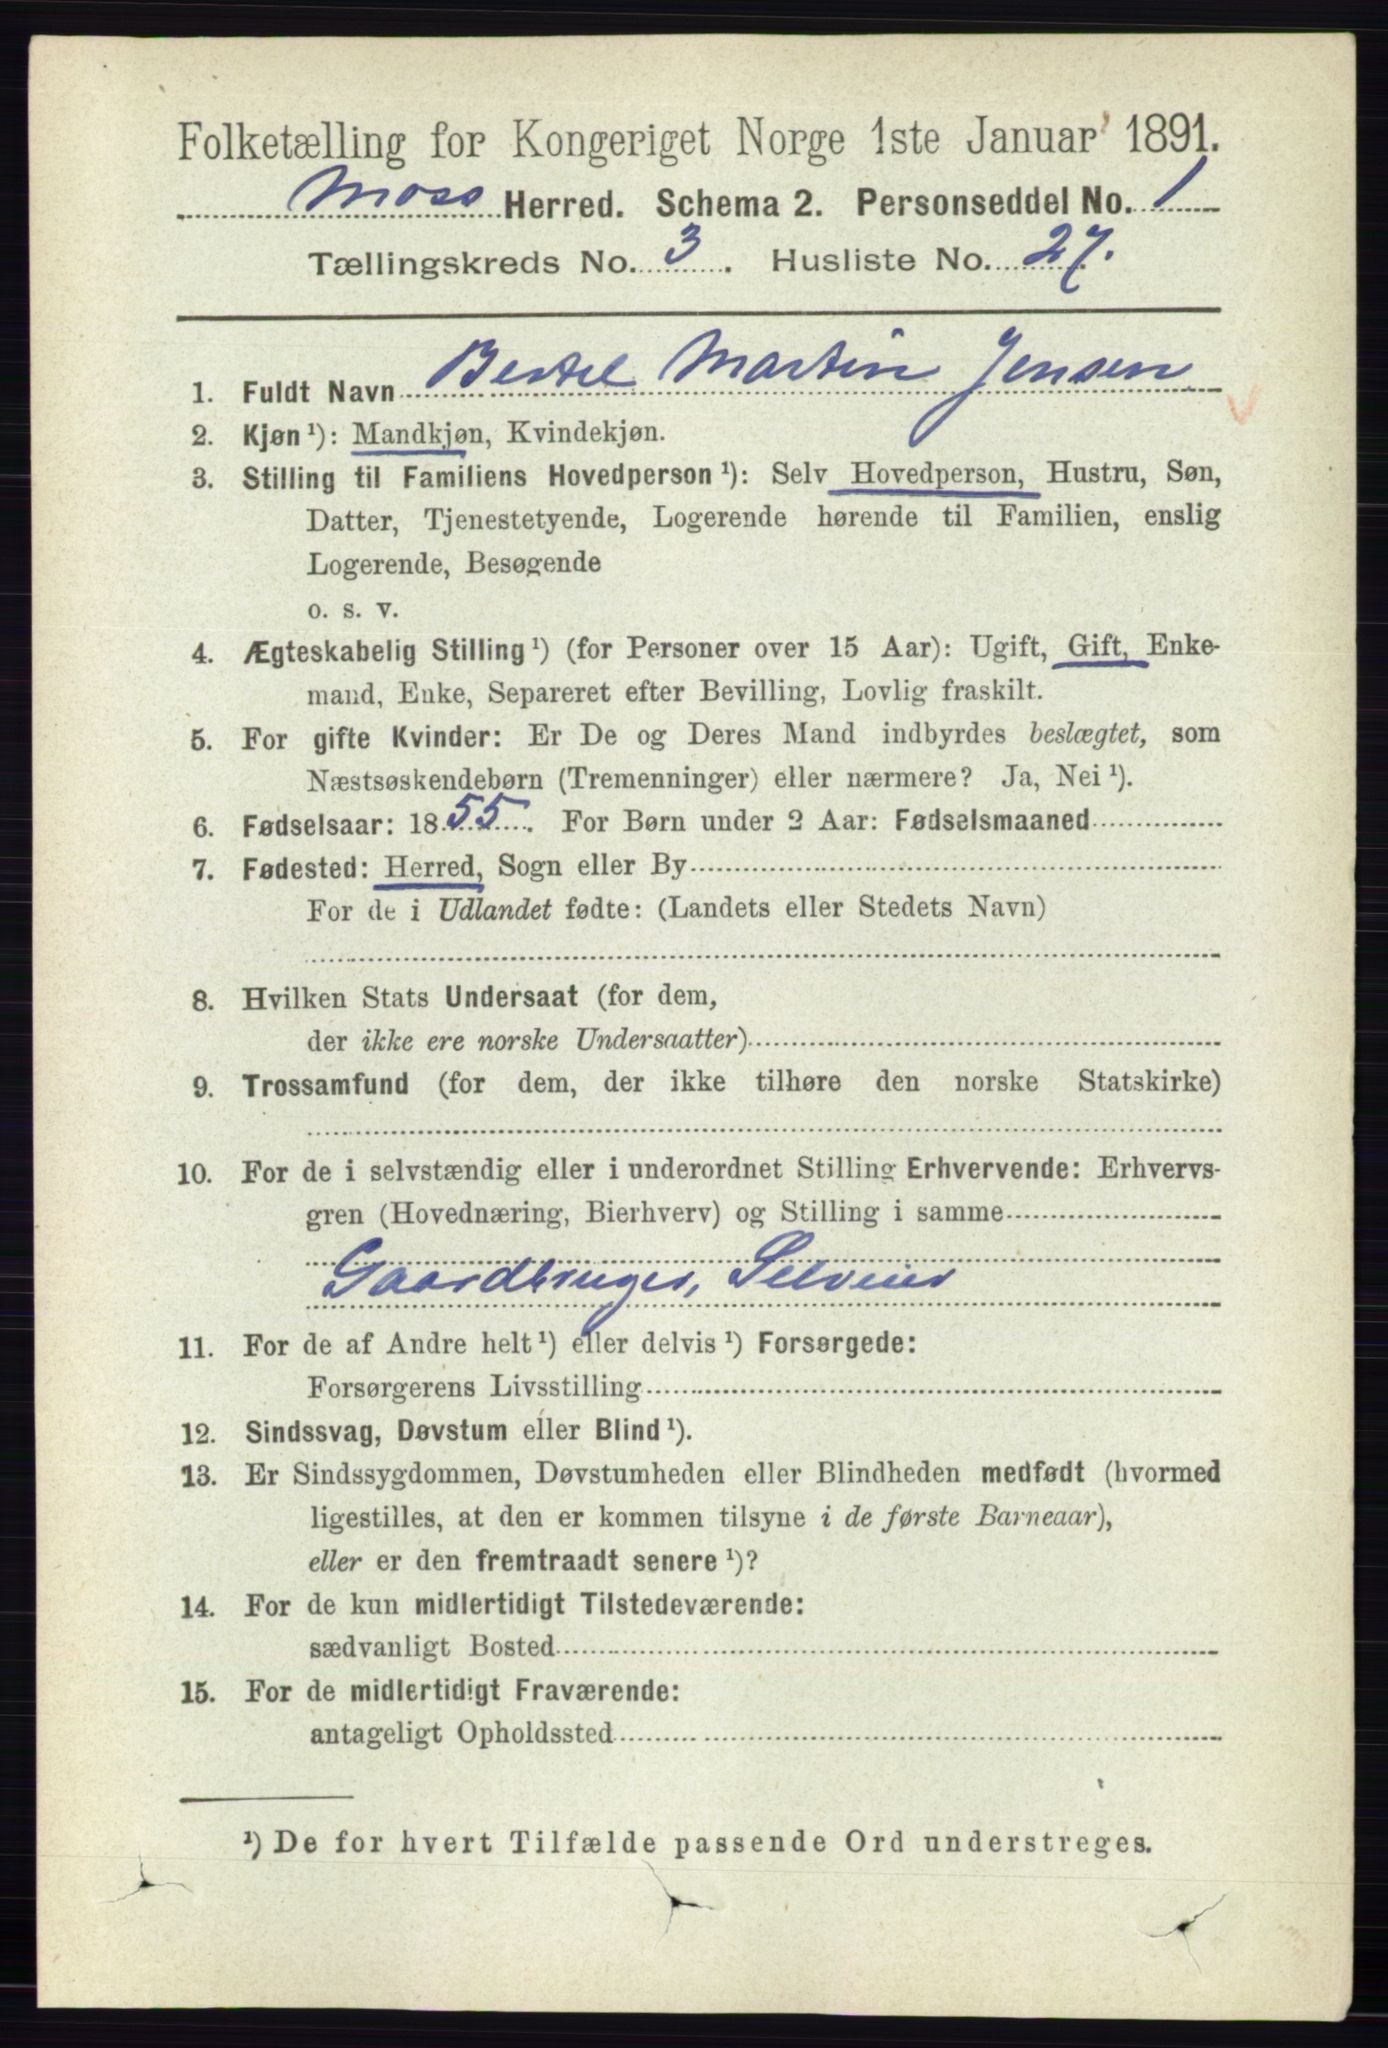 Folketælling for Kongeriget Norge 1ste Januar 1891.
Moss Herred. Schema 2. Personseddel No. 1
Tællingskreds No. 3. Husliste No. 27.
1. Fuldt Navn Bertel Martin Jensen
2. Kjøn¹): Mandkjøn, Kvindekjøn.
3. Stilling til Familiens Hovedperson¹): Selv Hovedperson, Hustru, Søn,
Datter, Tjenestetyende, Logerende hørende til Familien, enslig
Logerende, Besøgende
o. s. v.
4. Ægteskabelig Stilling¹) (for Personer over 15 Aar): Ugift, Gift, Enke-
mand, Enke, Separeret efter Bevilling, Lovlig fraskilt.
5. For gifte Kvinder: Er De og Deres Mand indbyrdes beslægtet, som
Næstsøskendebørn (Tremenninger) eller nærmere? Ja, Nei¹).
6. Fødselsaar: 1855. For Børn under 2 Aar: Fødselsmaaned
7. Fødested: Herred, Sogn eller By
For de i Udlandet fødte: (Landets eller Stedets Navn)
8. Hvilken Stats Undersaat (for dem,
der ikke ere norske Undersaatter)
9. Trossamfund (for dem, der ikke tilhøre den norske Statskirke)
10. For de i selvstændig eller i underordnet Stilling Erhvervende: Erhvervs-
gren (Hovednæring, Bierhverv) og Stilling i samme
Gaardbruger, Selveier
11. For de af Andre helt¹) eller delvis¹) Forsørgede:
Forsørgerens Livsstilling
12. Sindssvag, Døvstum eller Blind¹).
13. Er Sindssygdommen, Døvstumheden eller Blindheden medfødt (hvormed
ligestilles, at den er kommen tilsyne i de første Barneaar),
eller er den fremtraadt senere¹)?
14. For de kun midlertidigt Tilstedeværende:
sædvanligt Bosted
15. For de midlertidigt Fraværende:
antageligt Opholdssted
¹) De for hvert Tilfælde passende Ord understreges.